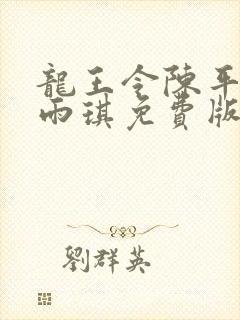 龍王令陳平
雨琪免費版
劉群英